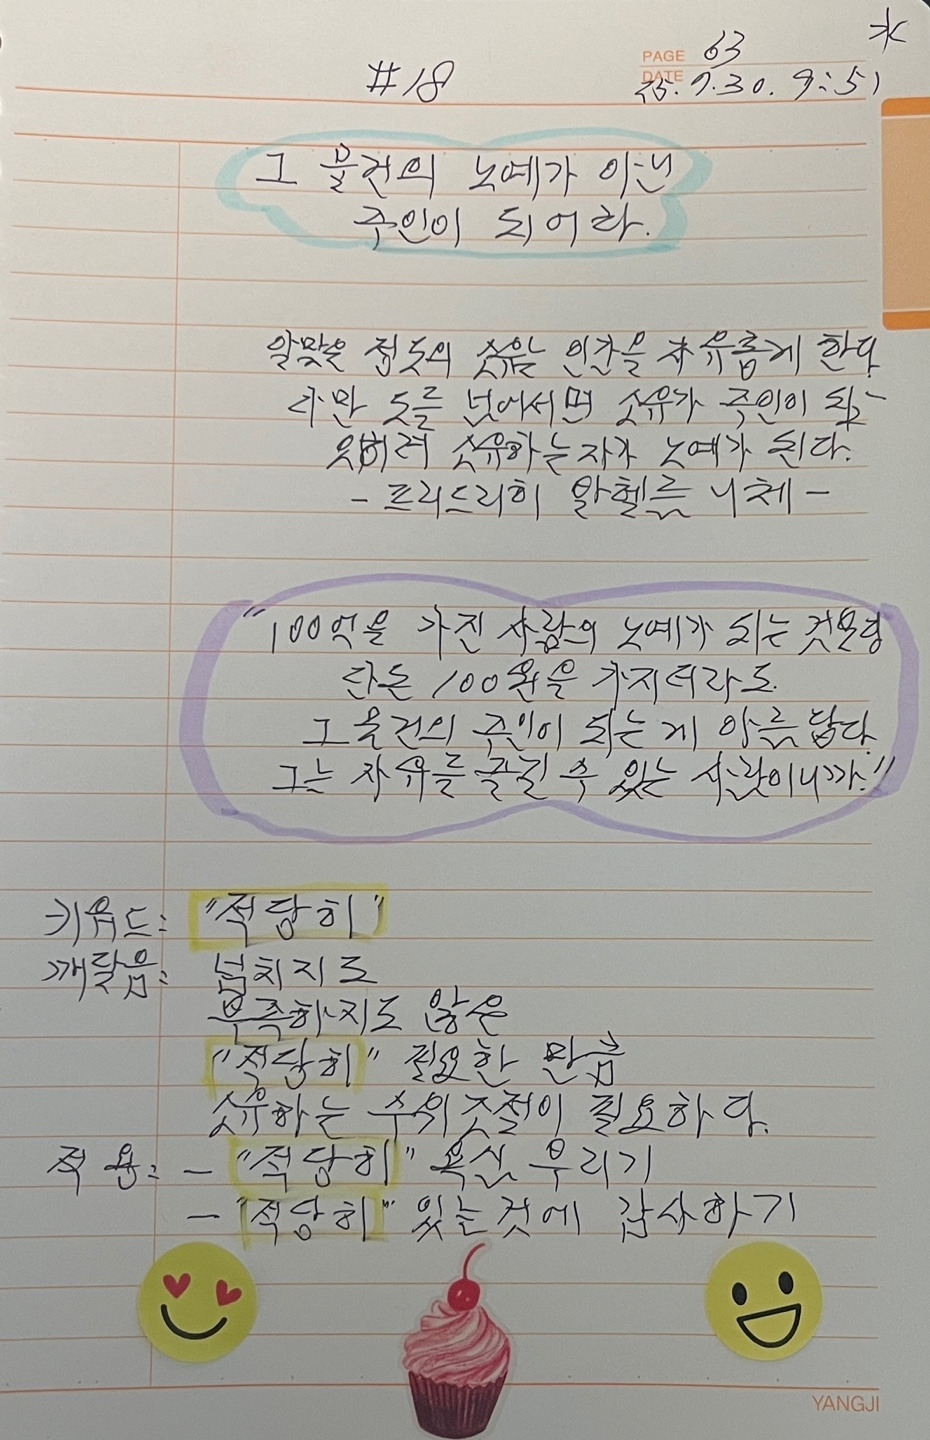 水
PAGE 63
#18
DATE 25.7.30. 9:51
그 물건의 노예가 아닌
주인이 되어라.
알맞은 정도의 소유는 인간을 자유롭게 한다.
다만 도를 넘어서면 소유가 주인이 되고
오히려 소유하는자가 노예가 된다.
- 프리드리히 빌헬름 니체 -
"100억을 가진 사람의 노예가 되는 것보다
단돈 100원을 가지더라도
그 물건의 주인이 되는 게 아름답다.
그는 자유를 즐길 수 있는 사람이니까."
키워드: "적당히"
깨달음: 넘치지도
부족하지도 않은
"적당히" 필요한 만큼
소유하는 수위조절이 필요하다.
적용: - "적당히" 욕심 부리기
- "적당히" 있는것에 감사하기
YANGJI